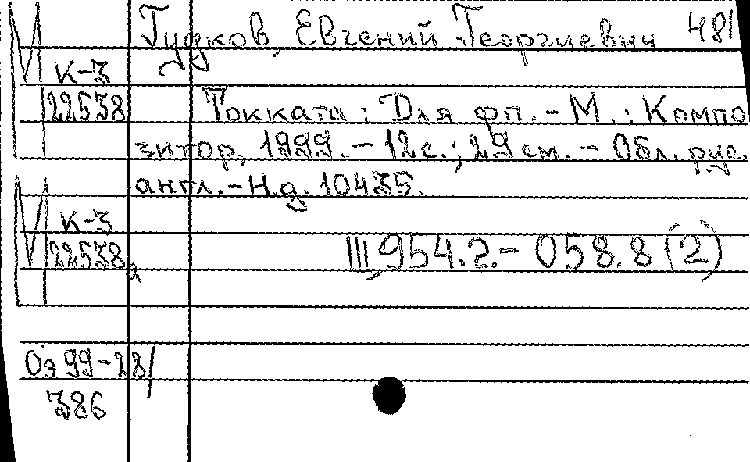 Гудков, Евгений Георгиевич 481
М К-3
22538 Токката: Для фп. - М.: Компо
зитор, 1999. - 12 с.; 29 см. - Обл. рус.
англ. - Н.д. 10435.
М К-3
22538а III, 954.2. - 058.8 (2)
Оэ 99-28/
386